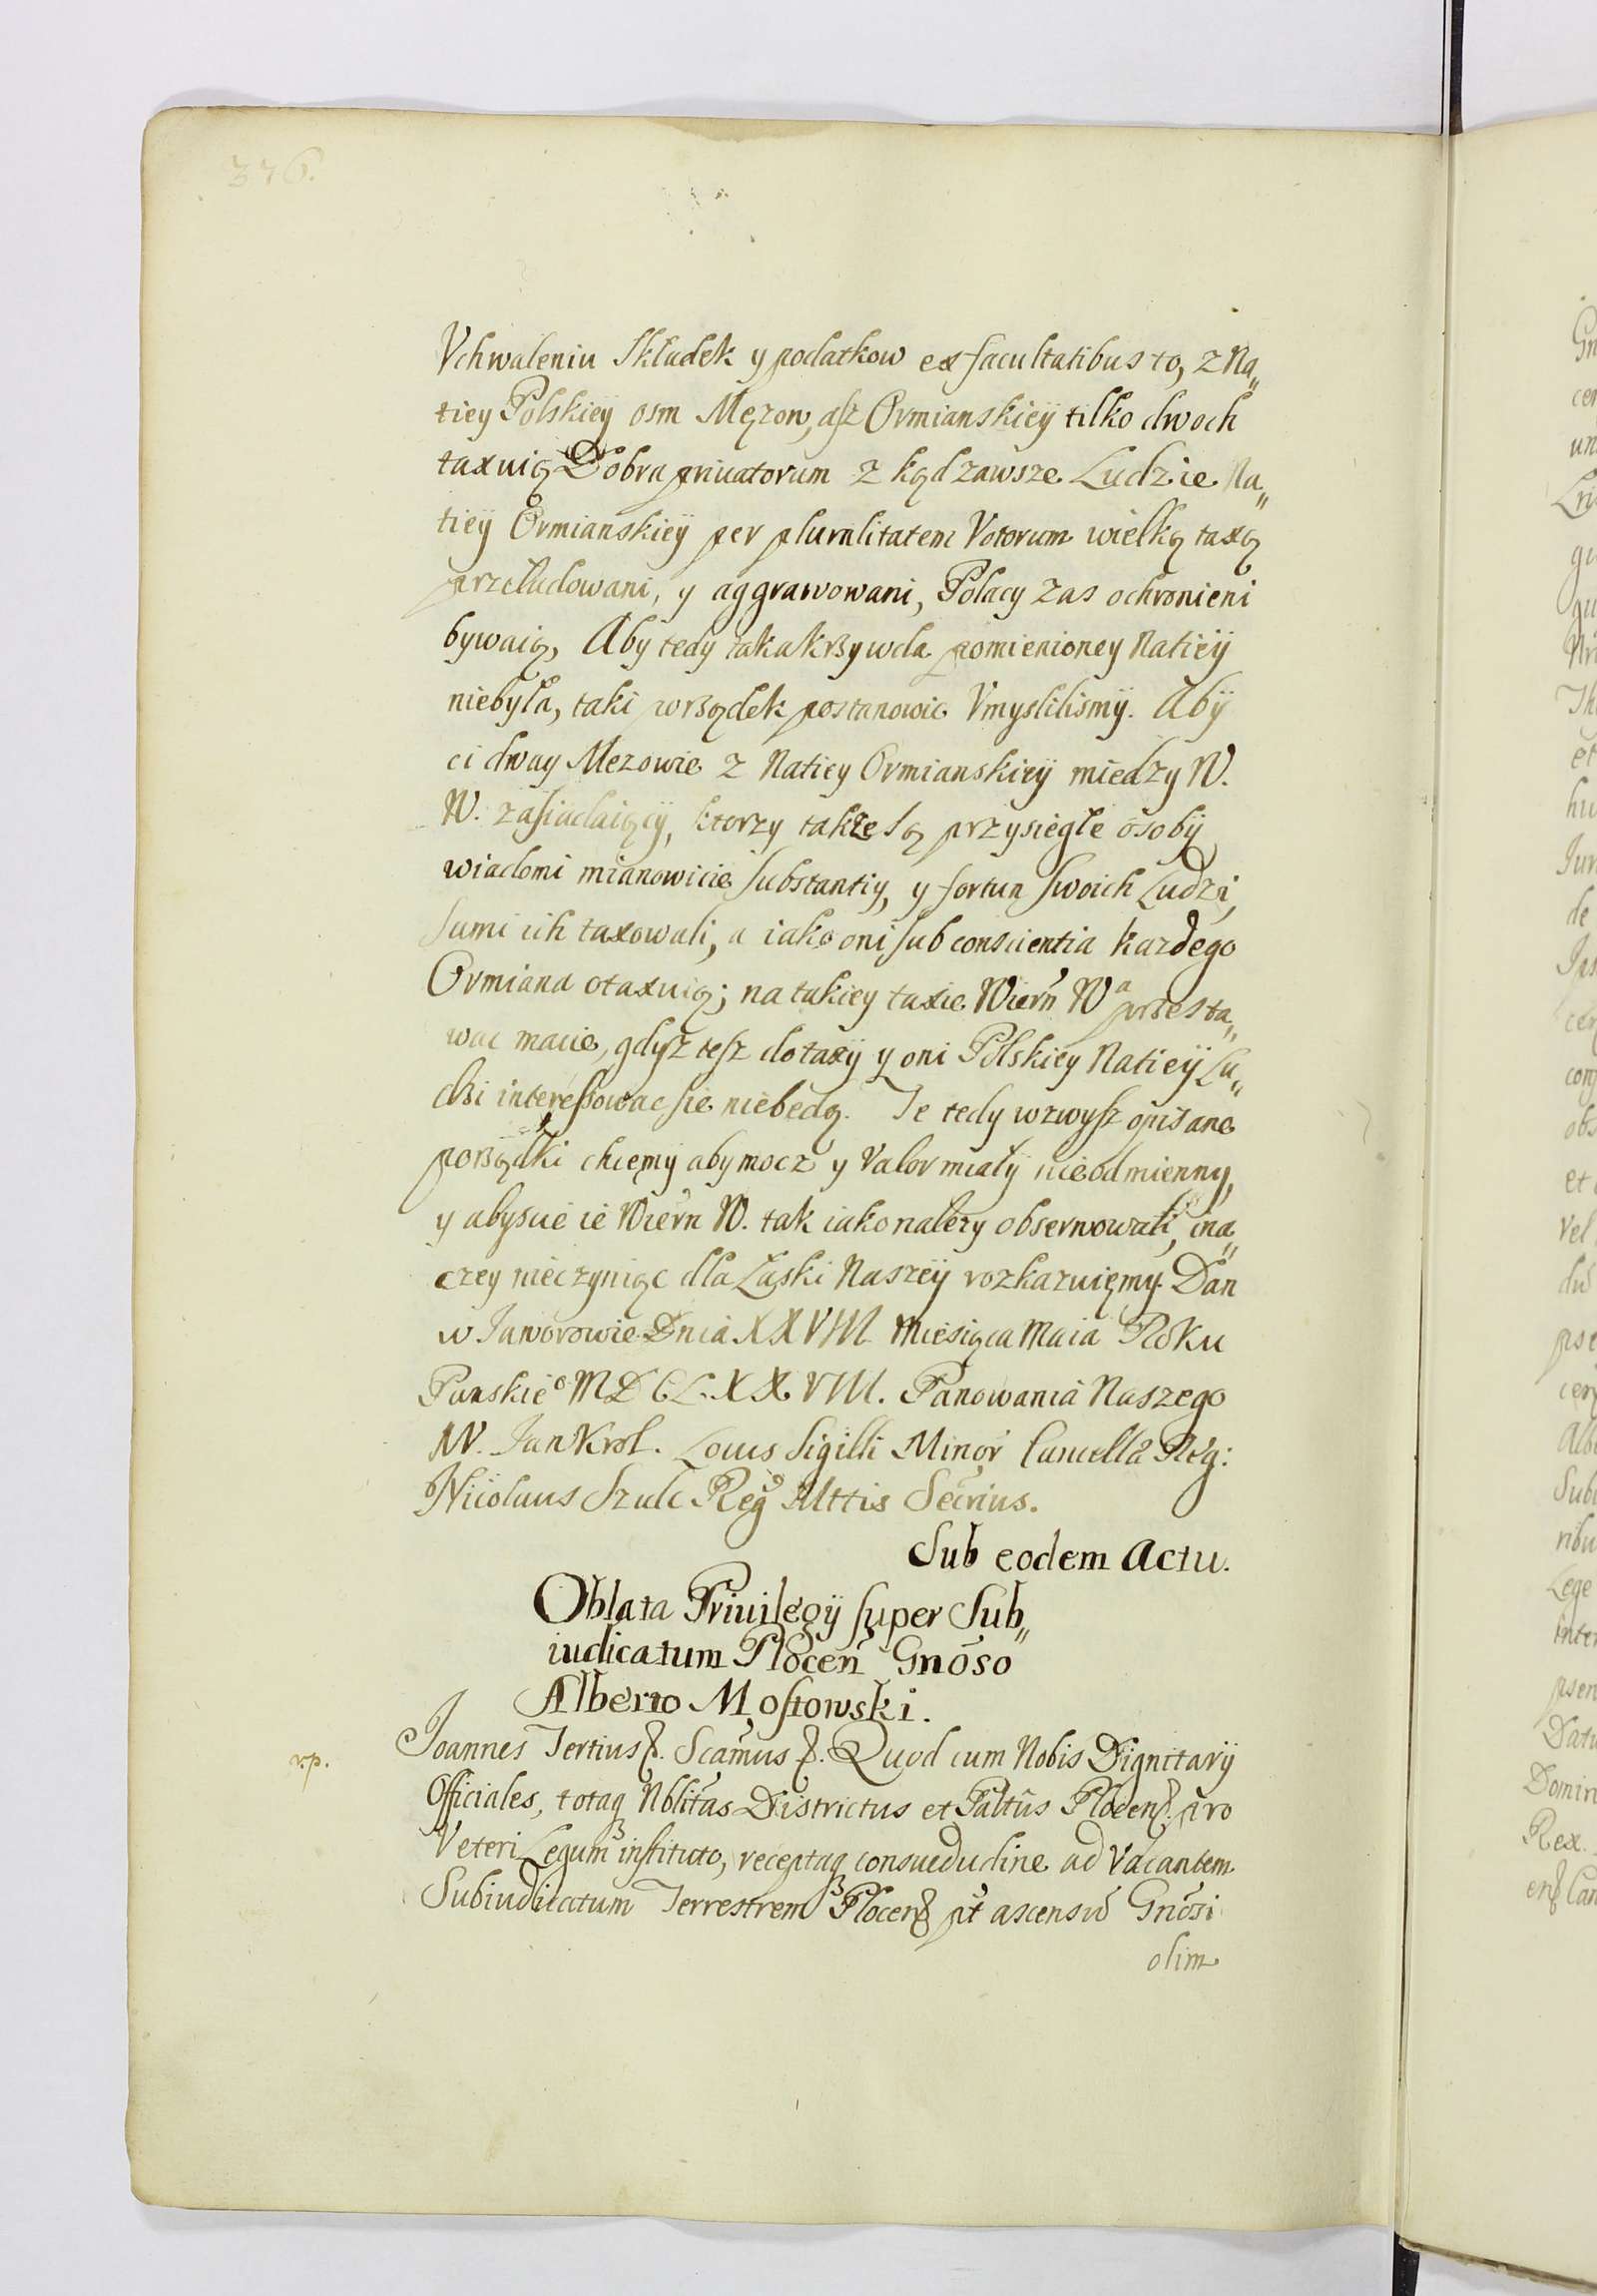 376.
Vchwaleniu Składek y podatkow ex facultatibus to, z Na„
tiey Polskieÿ osm Męzow, asz Ormianskieÿ tilko dwoch
taxuią Dobra priuatorum z kąd zawsze Ludzie Na„
tieÿ Ormianskieÿ per pluralitatem Votorum wielką taxą
przeładowani, y aggrawowani, Polacy zas ochronieni
bywaią, Aby tedy taka krzywda pomienioney Natieÿ
niebyła, taki porządek postanowic Vmyslilismÿ. Abÿ
ci dway Mezowie z Natiey Ormianskieÿ miedzy W.
W. zasiadaiącÿ, ktorzy takze są przysięgłe osobÿ
wiadomi mianowicie substantiy, y fortun swoich Ludzi,
sami ich taxowali, a iako oni sub conscientia kazdego
Ormiana otaxuią; na takiey taxie Wiern Wa przesta„
wac macie, gdysz tesz do taxÿ y oni Polskiey Natieÿ Lu„
dzi interessowac sie niebedą. Te tedy wzwysz opisane
porządki chcęmy aby mocz y Valor miałÿ nieodmienny,
y abyscie ie Wiern W. tak iako nalezy obserwowali, ina„
czey nieczyniąc dla Łaski Naszeÿ rozkazuięmy. Dan
w Jaworowie Dnia XXVIII Miesiąca Maia Roku
Panskieo MDCLXXVIII. Panowania Naszego
IV. Jan Krol. Locus Sigilli Minor Cancella Reg:
Nicolaus Szulc Reg Mttis Secrius.
Sub eodem Actu.
Oblata Priuilegÿ super Sub„
iudicatum Plocen Gnoso
Alberto Mostowski.
r.p.
Joannes Tertius &. Scamus &. Quod cum Nobis Dignitarÿ
Officiales, totaq Nblitas Districtus et Paltus Plocen. pro
Veteri Legum instituto, receptaq consuedudine ad Vacantem
Subiudicatum Terrestrem Plocen pt ascensu Gnosi
olim